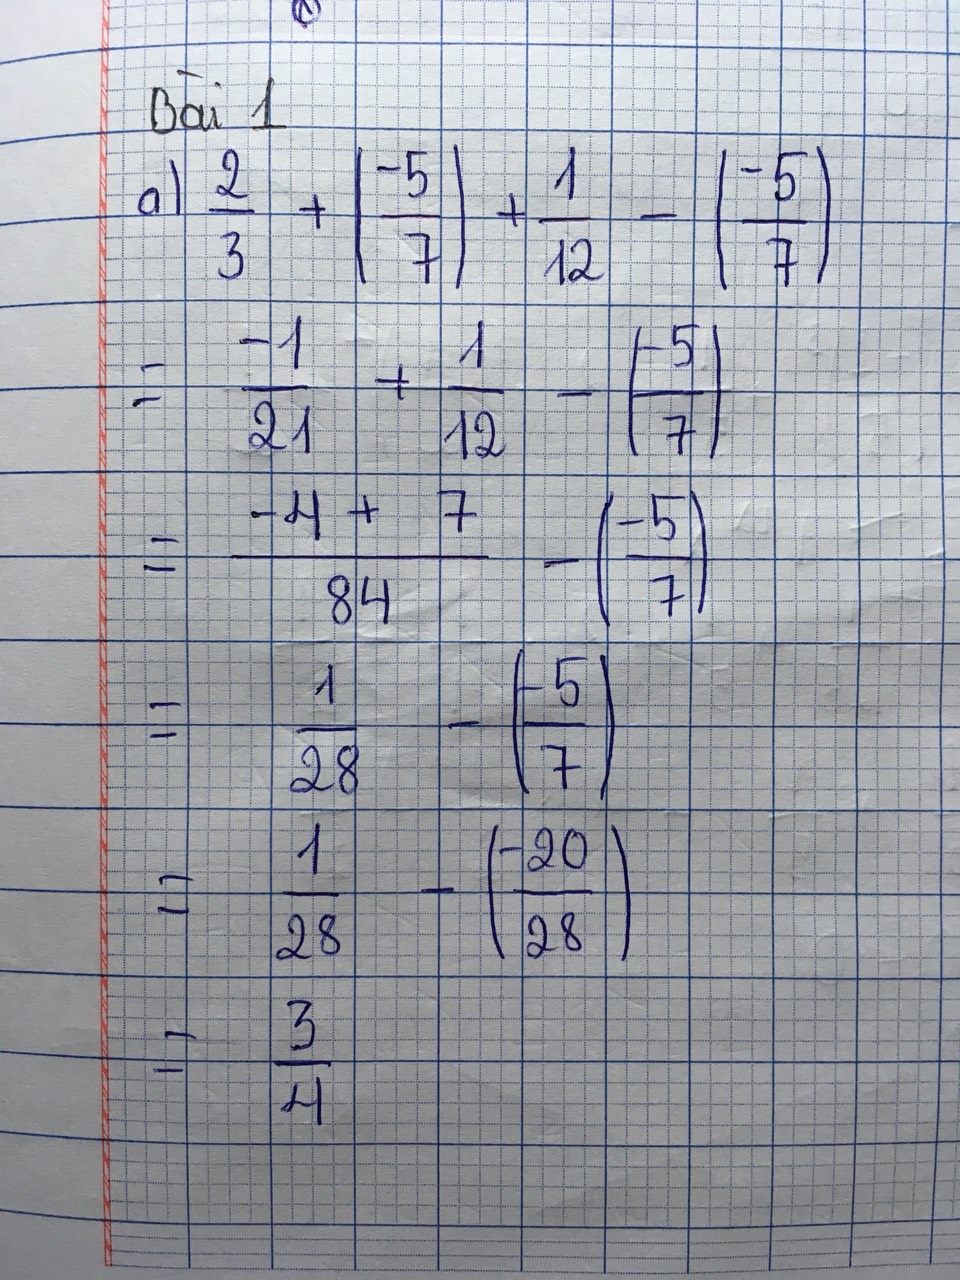 Bài 1
a) 2/3 + (-5/7) + 1/12 - (-5/7)
= -1/21 + 1/12 - (-5/7)
= (-4 + 7)/84 - (-5/7)
= 1/28 - (-5/7)
= 1/28 - (-20/28)
= 3/4